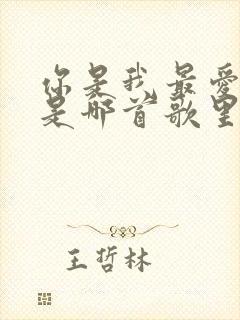 你是我最愛
是那首歌里
王哲林